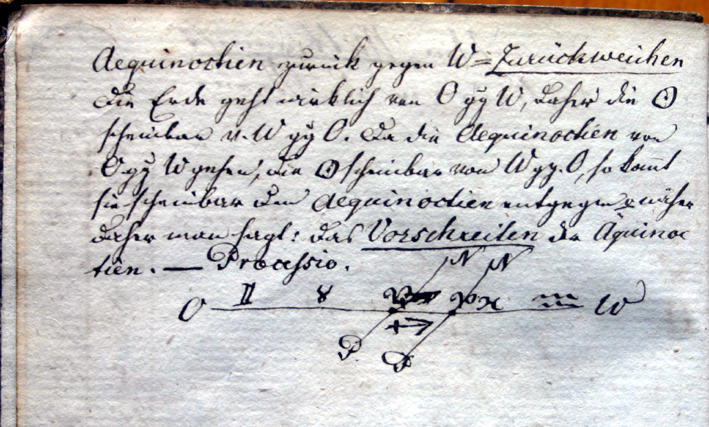 Aequinoctien zurück gegen W = Zurückweichen
Die Erde geht wirklich von O gg W, daher die ☉
scheinbar v. W gg O. Da die Aequinoctien von
O gg W gehen, die ☉ scheinbar von W gg. O, so kömt
sie scheinbar den Aequinoctien entgegen näher
daher man sagt: das Vorschreiten der Äquinoc
tien. — Processio.
N N
O ♊ ♉ ♈ ♓ ♒ W
P P